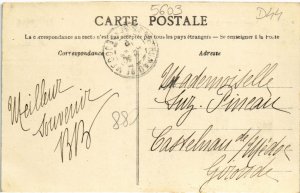 5603
D44
CARTE POSTALE
La correspondance au recto n'est pas acceptée par tous les pays étrangers. (Se renseigner à la Poste)
Correspondance
Adresse
Mademoiselle
Suz. Pineau
Castelnau de Médoc
Gironde
Meilleur
souvenir
BB
88